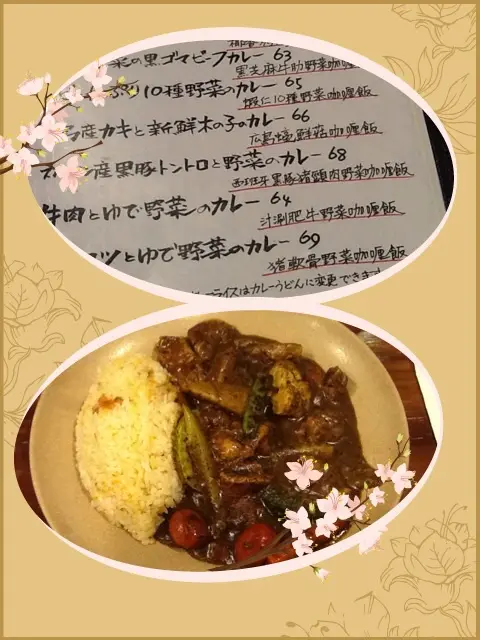 菜の黒ゴマビーフカレー 63
黒芝麻牛肋野菜咖喱飯
10種野菜のカレー 65
蝦仁10種野菜咖喱飯
産カキと新鮮木の子のカレー 66
広島蠔鮮菇咖喱飯
産黒豚トントロと野菜のカレー 68
西班牙黒豚猪頸肉野菜咖喱飯
牛肉とゆで野菜のカレー 64
汁涮肥牛野菜咖喱飯
ツとゆで野菜のカレー 69
猪軟骨野菜咖喱飯
ライスはカレーうどんに変更できます